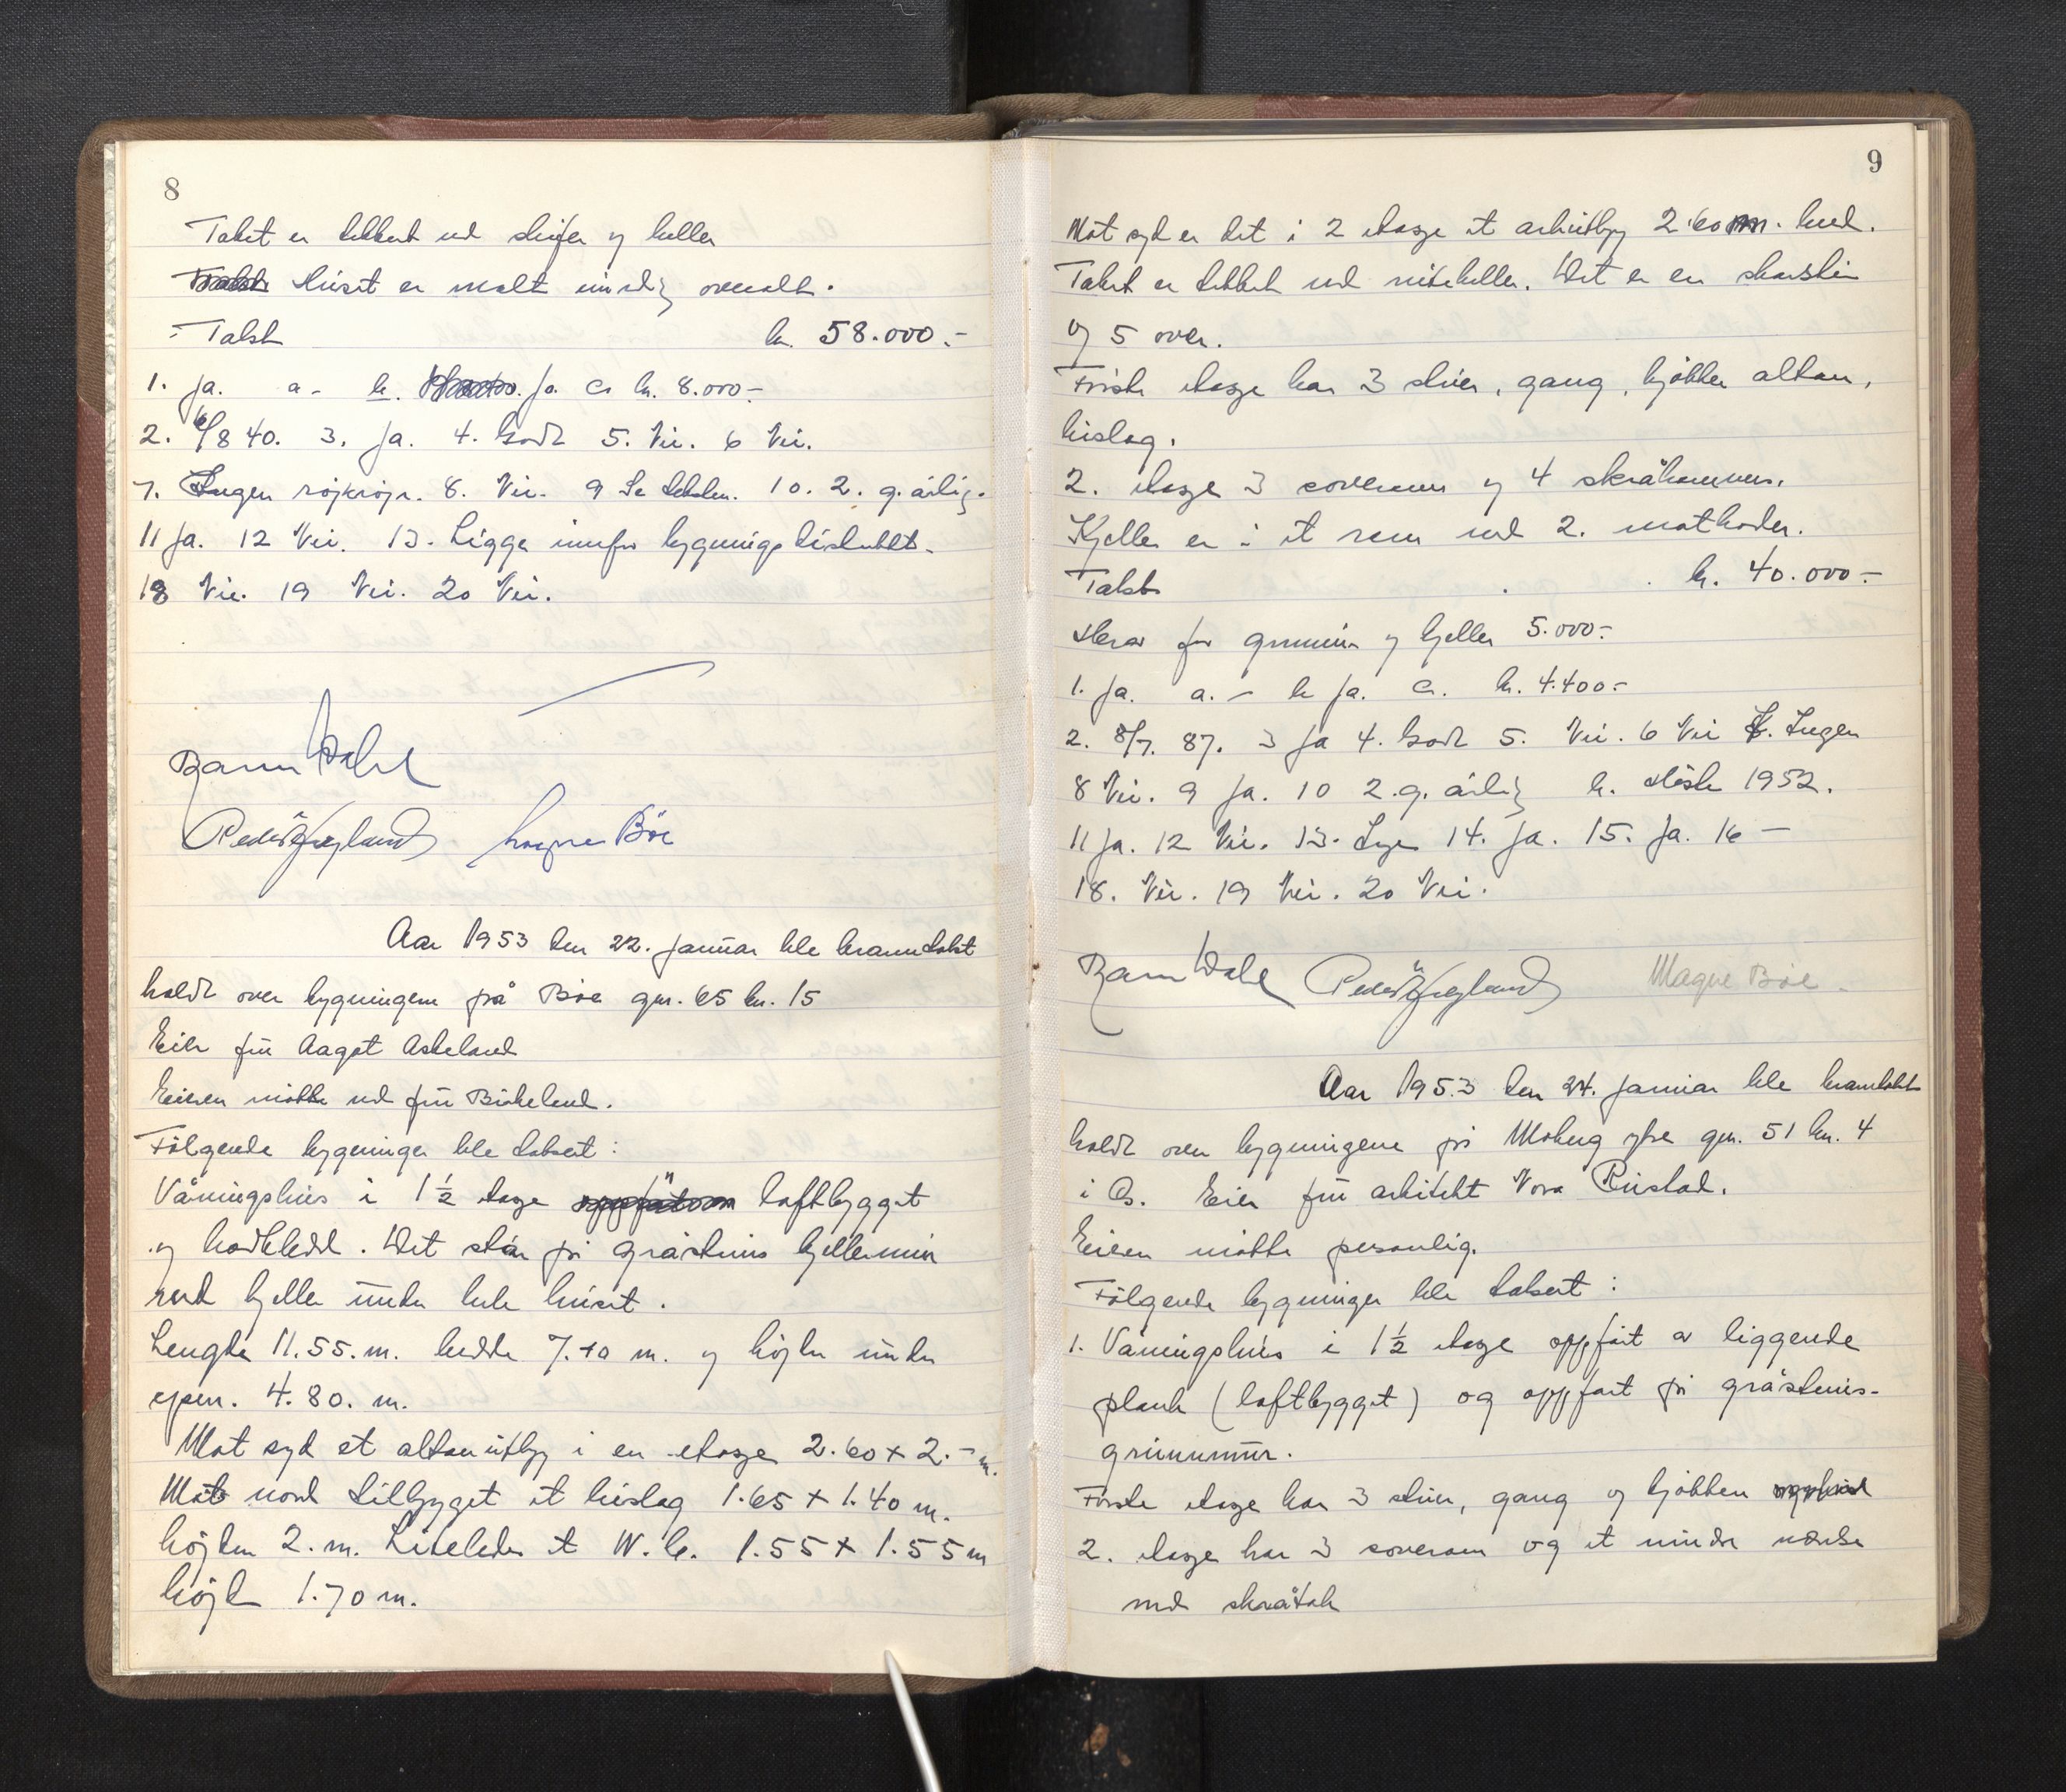 8
Taket er tekket med skifer og heller
Huset er malt innv. overalt.
Takst kr. 58.000.-
1. Ja. a - b. Ja. c. kr. 8.000.-
2. 6/8 40. 3. Ja. 4. Godt 5. Nei. 6 Nei.
7. Ingen 8. Nei. 9 Se 10. 2. g. årlig.
11 Ja. 12 Nei. 13. Ligger innfor bygningsdistriktet.
18 Nei. 19 Nei. 20 Nei.
Dahl
Magne Böe
Aar 1953 den 22. januar ble branntakst
holdt over bygningene på Böe gnr. 65 bnr. 15
Eier frü Aagot Askeland
Eieren mötte ved frü Birkeland.
Fölgende bygninger ble taksert:
Våningshüs i 1½ etage loftbygget
og bordkledd. Det står på gråsteins kjellermür
med kjeller ünder hele hüset.
Lengde 11.55. m. bredde 7.40 m. og höjde ünder
gesm. 4.80. m.
Mot syd et altanütbygg i en etasje 2.60 x 2.- m.
Mot nord tilbygget et bislag 1.65 x 1.40 m.
höjden 2. m. Likeledes et W.C. 1.55 x 1.55 m
höjde 1.70 m.
9
Mot syd er det i 2 etasje et arkütbygg 2.60 m. bred.
Taket er tekket med heller. Det er en skorstein
og 5 ovner.
Förste etasje har 3 stüer, gang, kjökken altan,
bislag.
2. etasje 3 soverum og 4 skråkammers.
Kjeller er i et rom med 2. matboder.
Takst kr. 40.000.-
Herav for grunnmür og kjeller 5.000.-
1. Ja. a. - b Ja. c. kr. 4.400.-
2. 8/7. 87. 3 Ja 4. Godt 5. Nei. 6 Nei 7. Ingen
8 Nei. 9 Ja. 10 2. g. årlig b. Höst 1952.
11 Ja. 12 Nei. 13. Ingen 14. Ja. 15. Ja. 16 -
18. Nei. 19 Nei. 20 Nei.
Dahl Magne Böe
Aar 1953 den 24. januar ble branntakst
holdt over bygningene på Moberg ytre gnr. 51 bnr. 4
i Os. Eier frü arkitekt Nora Rüstad.
Eieren mötte personlig.
Fölgende bygninger ble taksert:
1. Våningshüs i 1½ etage oppfört av liggende
plank (loftbygget) og oppfört på gråsteins-
grünnmür.
Förste etage har 3 stüer, gang og kjökken
2. etage har 3 soverom og et mindre værelse
med skråtak